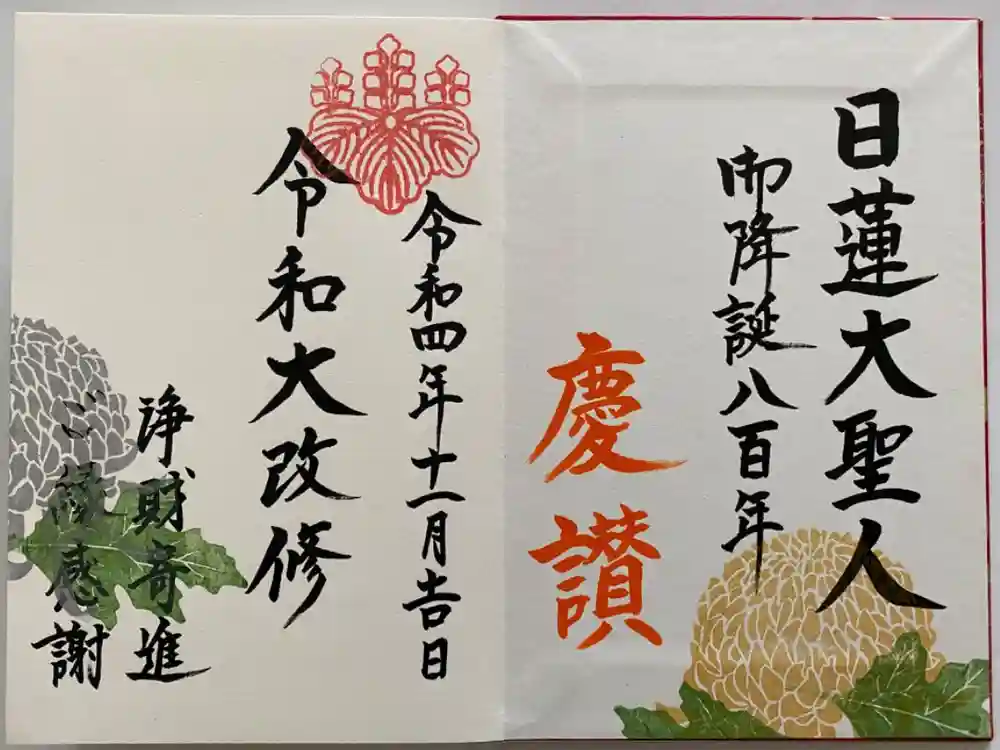 日蓮大聖人
御降誕八百年
慶讃
令和四年十一月吉日
令和大改修
浄財寄進
ご縁感謝